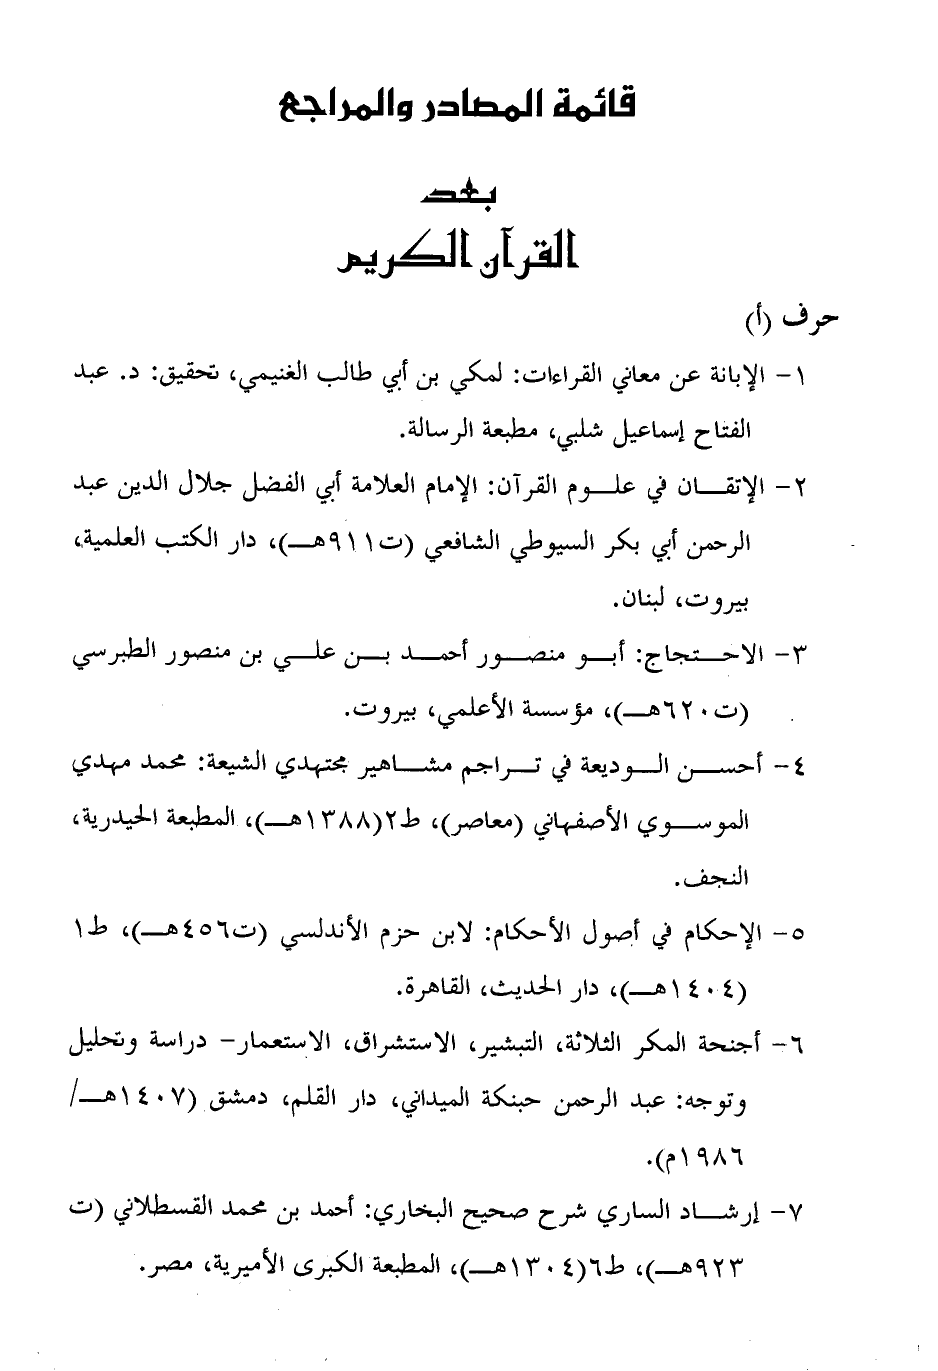 قائمة المصادر والمراجع
بعد
القرآن الكريم
حرف (أ)
١- الإبانة عن معاني القراءات: لمكي بن أبي طالب الغنيمي، تحقيق: د. عبد
الفتاح إسماعيل شلبي، مطبعة الرسالة.
٢- الإتقـــان في علـــوم القرآن: الإمام العلامة أبي الفضل جلال الدين عبد
الرحمن أبي بكر السيوطي الشافعي (ت٩١١هـــ)، دار الكتب العلمية،
بيروت، لبنان.
٣- الاحـــتجاج: أبـــو منصـــور أحمـــد بـــن علـــي بن منصور الطبرسي
(ت٦٢٠هـــ)، مؤسسة الأعلمي، بيروت.
٤- أحســـن الـــوديعة في تـــراجم مشـــاهير مجتهدي الشيعة: محمد مهدي
الموســـوي الأصفهاني (معاصر)، ط٢(١٣٨٨هـــ)، المطبعة الحيدرية،
النجف.
٥- الإحكام في أصول الأحكام: لابن حزم الأندلسي (ت٤٥٦هـــ)، ط١
(١٤٠٤هـــ)، دار الحديث، القاهرة.
٦- أجنحة المكر الثلاثة، التبشير، الاستشراق، الاستعمار- دراسة وتحليل
وتوجه: عبد الرحمن حبنكة الميداني، دار القلم، دمشق (١٤٠٧هـــ/
١٩٨٦م).
٧- إرشـــاد الساري شرح صحيح البخاري: أحمد بن محمد القسطلاني (ت
٩٢٣هـــ)، ط٦(١٣٠٤هـــ)، المطبعة الكبرى الأميرية، مصر.